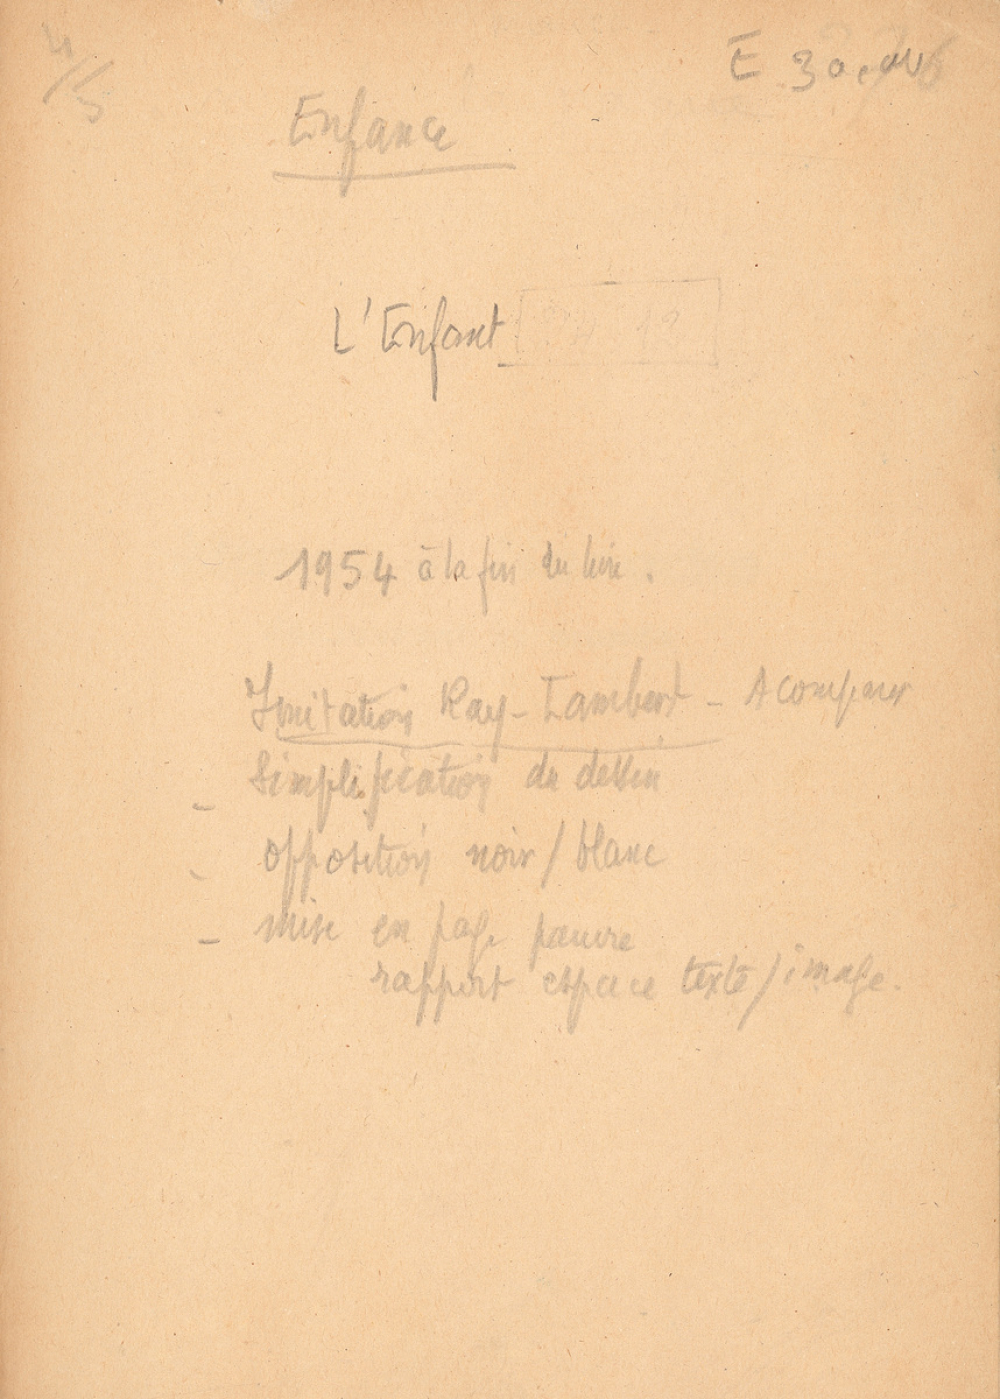 4/5
E 3
Enfance
L'Enfant
19
1954 à la fin du livre.
Imitation Ray-Lambert - A comparer
- Simplification du dessin
- opposition noir/blanc
- mise en page pauvre
rapport espace texte/image.